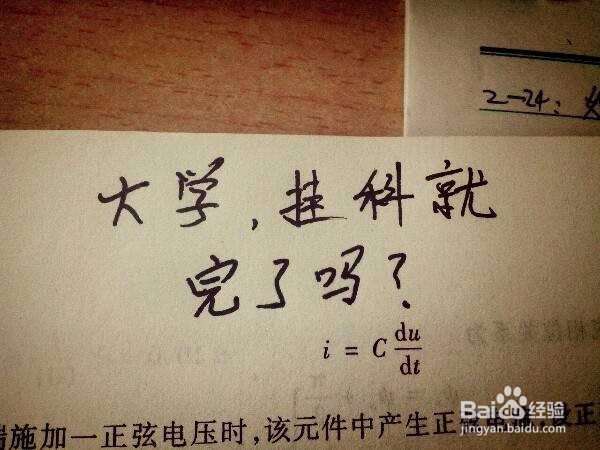 2-24:
大学,挂科就
完了吗?
i = C du/dt
端施加一正弦电压时,该元件中产生正弦电流
Baidu 经验
jingyan.baidu.com